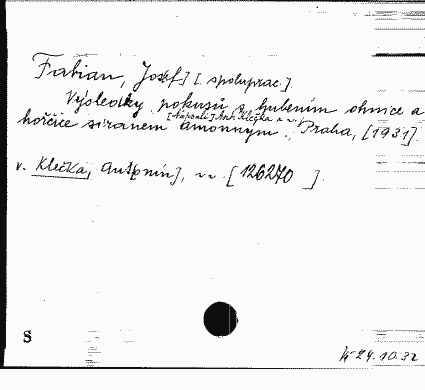 Fabian, Josef] [spoluprac.]
Výsledky pokusů s hubením ohnice a
[Napsali] Ant. Klečka a
hořčice síranem amonným. Praha, [1931].
v. Klečka, Ant[onín], [126270 ].
S
24.10.32